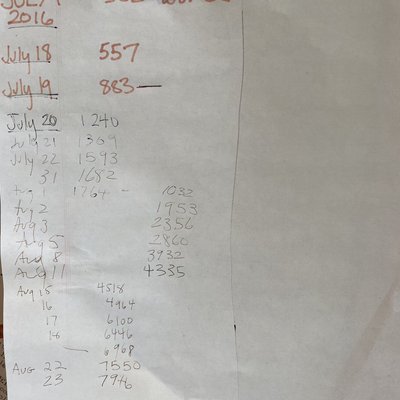 2016
July 18 557
July 19 883 —
July 20 1240
July 21 1369
July 22 1593
31 1682
Aug 1 1764 - 1032
Aug 2 1953
Aug 3 2356
Aug 5 2860
Aug 8 3932
Aug 11 4335
Aug 15 4518
16 4964
17 6100
18 6446
— 6908
Aug 22 7550
23